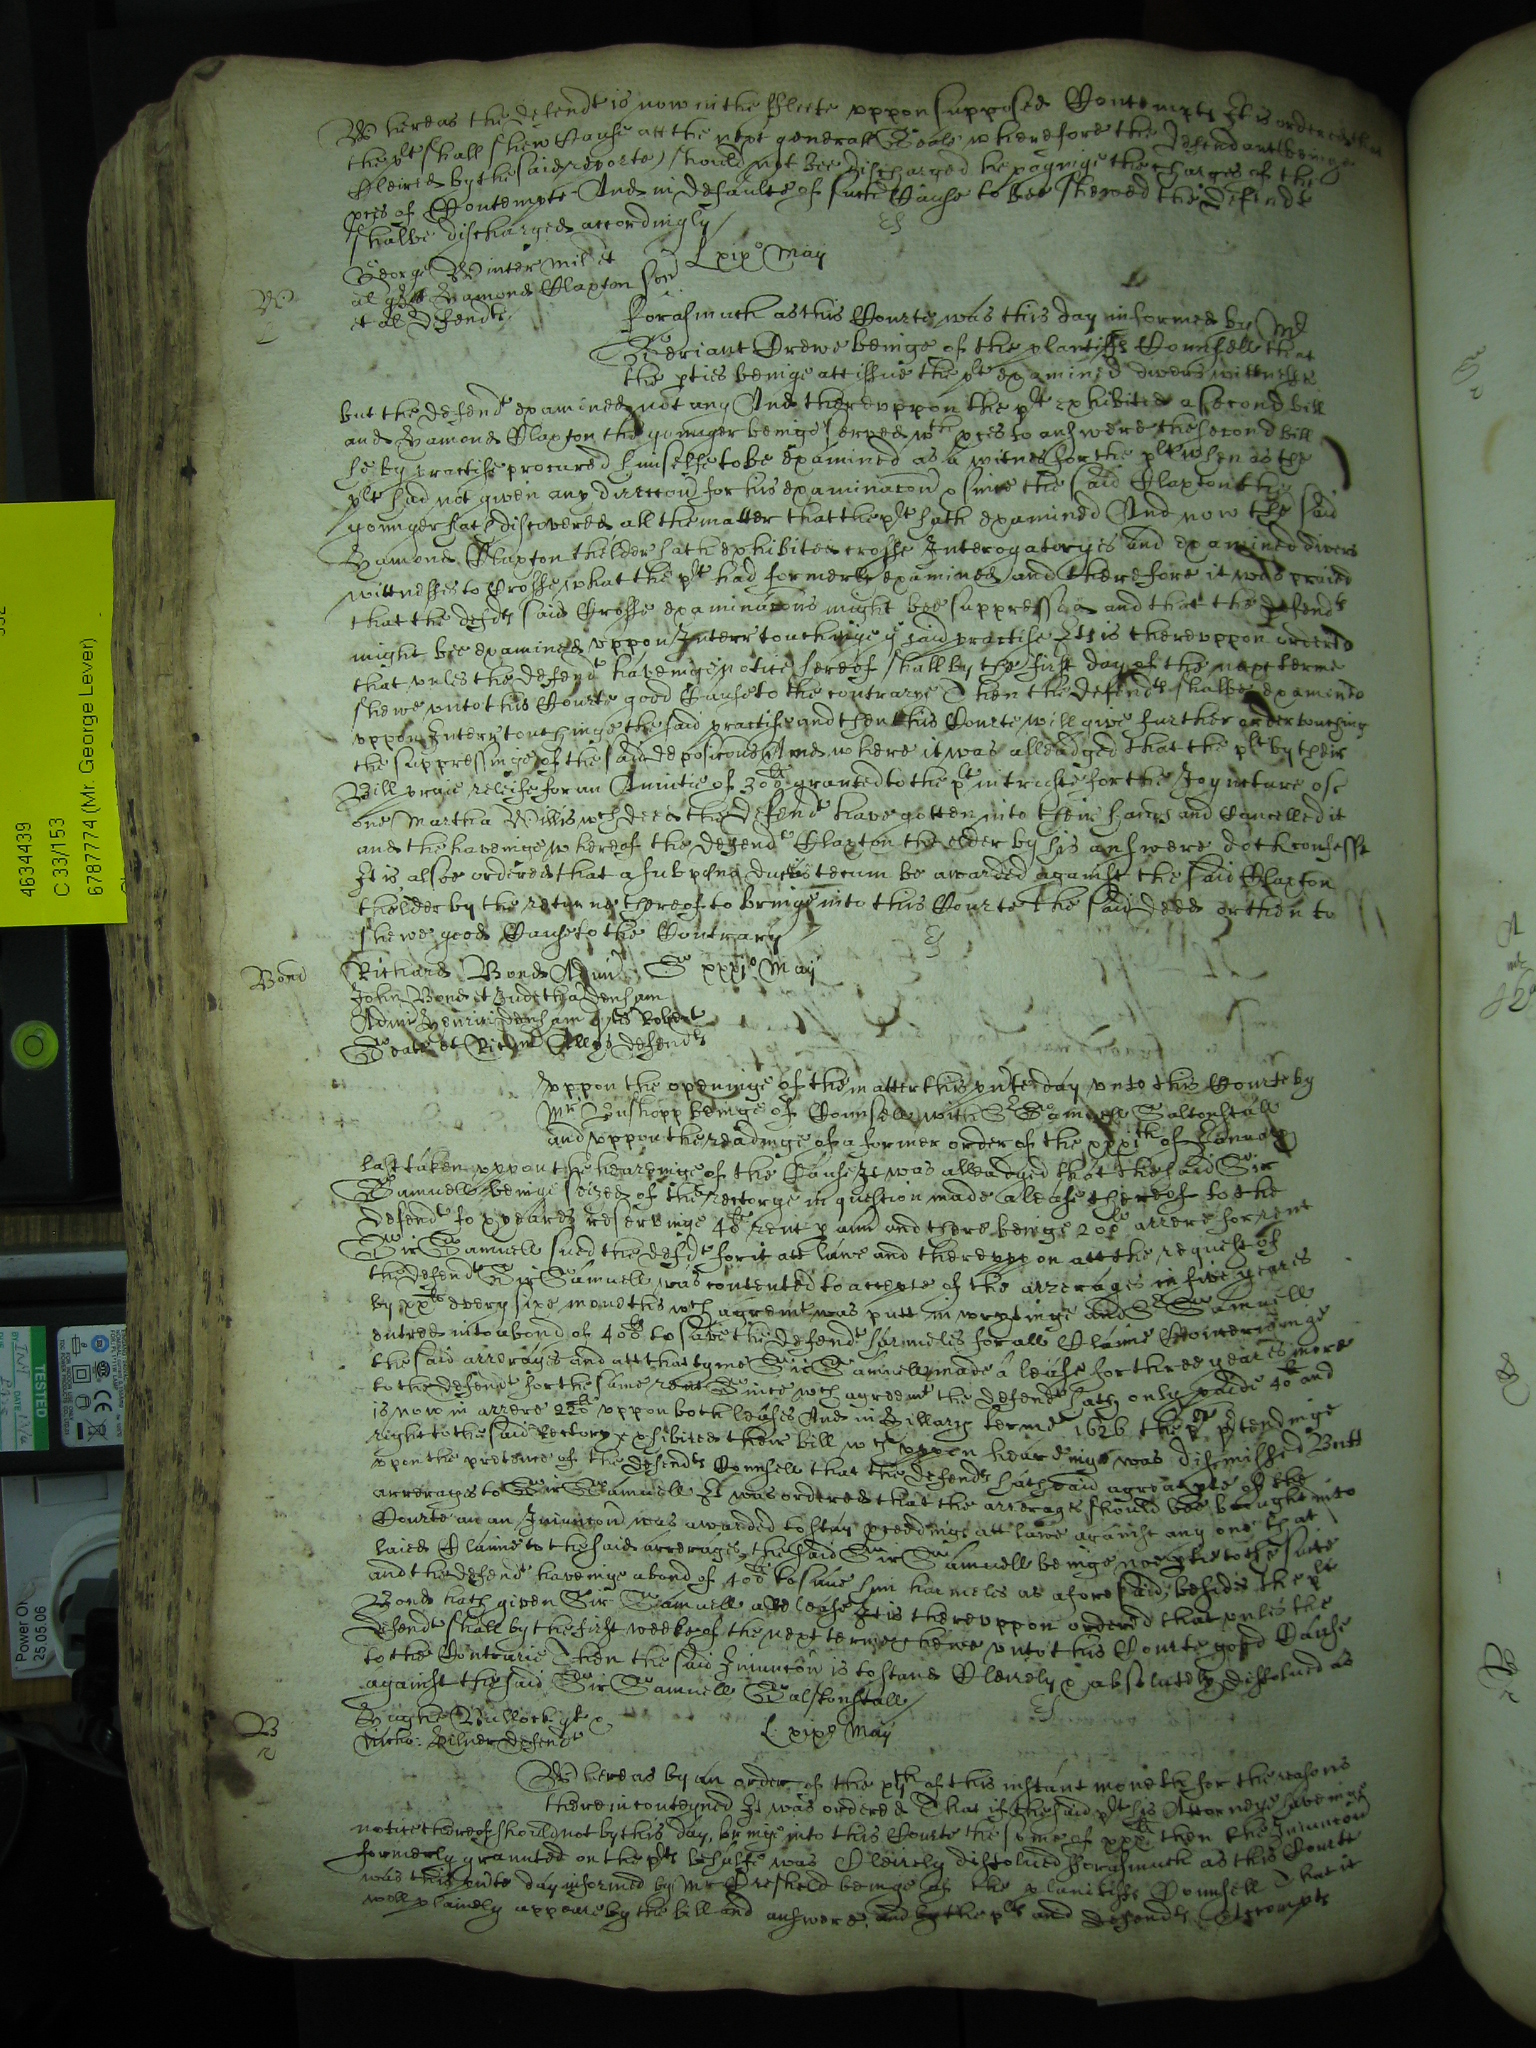 Whereas the defendt is now in the Fleete vppon supposed Contempts It is ordered that
the plt shall shew Cause att the next generall Seale wherefore the Defendant beinge
Cleired by the said reporte should not bee discharged he payinge the charges of the
pces of Contempte And in defaulte of such Cause to bee shewed the defendt
shalbe discharged accordingly
George Winter mil et
al qts Hamond Claxton sen
et al Defendts
L xixo May
W
Forasmuch as this Courte was this day informed by Mr
Seriant Crewe beinge of the plantiffs Counsell that
the pties beinge att issue the plt examined divers wittnesses
but the defendt examined not any And therevppon the plt exhibited a second bill
and Hamond Claxton the younger beinge served wth pces to answere the second bill
he by practise procured himselfe to be examined as a witnes for the plt when as the
plt had not given any direccon for his examinacon & since the said Claxton the
younger hath discovered all the matter that the plt hath examined And now the said
Hamond Claxton thelder hath exhibited crosse Interogatoryes and examined divers
wittnesses to Crosse what the plt had formerly examined and therefore it was praied
that the defdts said Crosse examinacons might bee suppressed and that the defendts
might bee examined vppon Interr touchinge ye said practise It is therevppon ordered
that vnles the defendt haveinge notice hereof shall by the first day of the next terme
shewe vnto this Courte good Cause to the contrarye Then the defendts shalbe examined
vppon Interr touchinge the said practise and then this Courte will give further order touching
the suppressinge of the said deposicons And where it was alleadged that the plt by their
Bill praie releife for an Annuitie of 30li granted to the plt in truste for the Joynture of
one Martha Willis wch deed the defendt have gotten into their hands and Cancelled it
and the haveinge whereof the defendt Claxton the elder by his answere doth confesse
It is alsoe ordered that a subpena duces tecum be awarded against the said Claxton
thelder by the returne thereof to bringe into this Courte the said deed or then to
shewe good Cause to the Contrary
Bond
Richard Bond Admi
John Bond et Juditha Denham
Admi Henrici Denham qts Robert
et Ric defendts
S xxxjo May
Vppon the openinge of the matter this pnte day vnto this Courte by
Mr Bushopp beinge of Counsell with Sr Samuell Saltonstall
and vppon the readinge of a former order of the xxxjth of January
last taken vppon the heareinge of the Cause It was alleadged that the said Sir
Samuell beinge seized of the rectorye in question made a lease thereof to the
defendt fo yeares reserveinge 40li rent p ann and there beinge 200li arrere for rent
Sir Samuell sued the defdt for it att lawe and therevppon att the request of
the defendt Sir Samuell was contented to accepte of the arrerages in five yeares
by xxli every sixe moneths wch agreemt was putt in wrytinge and Sr Samuell
entred into a bond of 400li to save the defendt harmeles for all Claime Concerninge
the said arrerages and att that tyme Sir Samuell made a lease for three yeares more
to the defendt for the same rent Since wch agreemt the defendt hath only paide 40li and
is now in arrere 220li vppon both leases And in Hillary terme 1626 the plt ptendinge
right to the said Rectory exhibited their bill wch vppon heareinge was dismissed Butt
vpon the pretence of the defendts Counsell that the defendt hath paid a greate pte of the
arrerages to Sir Samuell It was ordered that the arrerages should bee brought into
Courte an an Iniuncon was awarded to stay pceedings att lawe against any one that
laied Claime to the said arrerages the said Sir Samuell beinge noe ptie to the suite
and the defendt haveinge a bond of 400li to save him harmeles as aforesaid, besides the plt
Bond hath given Sir Samuell a Release It is therevppon ordered that vnles the
defendt shall by the first weeke of the next terme shewe vnto this Courte good Cause
to the Contrarie Then the said Iniuncon is to stand Cleirely & absolutely dissolued as
against the said Sir Samuell Saltonstall
B
Hughe Bullock qt
Nicho: Hilner defendt
L xixo May
Whereas by an order of the xth of this instant moneth for the reasons
therein conteyned It was ordered That if the said plt his Attorneye haveinge
notice thereof should not by this day bringe into this Courte the some of xxxli then the Iniuncon
formerly graunted on the plts behalfe was Cleirely dissolued Forasmuch as this Courte
was this pnte day informed by Mr Cresheld beinge of the plaintiffs Counsell That it
well plainely appeare by the bill and answere, and by the plts and defendts Accompts
4634439
C 33/153
6787774 (Mr. George Lever)
TESTED
Power On
25.05.06